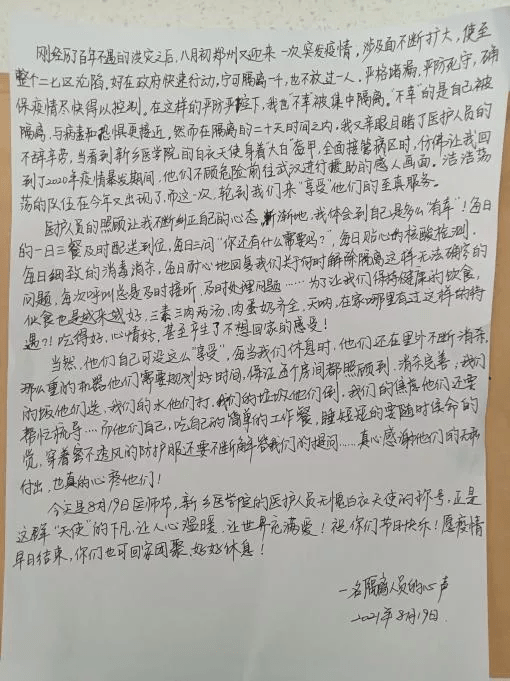 刚经历了百年不遇的洪灾之后,八月初郑州又迎来一次突发疫情,涉及面不断扩大,使至
整个二七区沦陷。好在政府快速行动,宁可隔离一千,也不放过一人,严格堵漏,严防死守,确
保疫情尽快得以控制。在这样的严防严控下,我也"不幸"被集中隔离。"不幸"的是自己被
隔离,与病毒和恐惧更接近,然而在隔离的二十天时间之内,我又亲眼目睹了医护人员的
不辞辛劳,当看到新乡医学院的白衣天使身着大白盔甲,全面接管病区时,仿佛让我回
到了2020年疫情暴发期间,他们不顾危险前往武汉进行援助的感人画面。浩浩荡
荡的队伍在今年又出现了,而这一次,轮到我们来"享受"他们的至真服务。
医护人员的照顾让我不断纠正自己的心态,渐渐地,我体会到自己是多么"有幸"!每日
的一日三餐及时配送到位,每日三问"你还有什么需要吗?",每日贴心的核酸检测,
每日细致的消毒消杀,每日耐心地回复我们关于何时解除隔离这样无法确定的
问题,每次呼叫总是及时接听,及时处理问题……为了让我们保持健康的饮食,
伙食也是越来越好,三素三肉两汤,肉蛋奶齐全,天呐,在家哪里有过这样的待
遇?!吃得好,心情好,甚至产生了不想回家的感受!
当然,他们自己可没这么"享受",每当我们休息时,他们还在里外不断消杀,
那么重的机器他们需要规划好时间,保证每个房间都照顾到,消杀完善,我们
的饭他们送,我们的水他们打,我们的垃圾他们倒,我们的焦虑他们还要
帮忙疏导……而他们自己,吃自己的简单的工作餐,睡短短的要随时候命的
觉,穿着密不透风的防护服还要不断解答我们的提问……真心感谢他们的无私
付出,也真的心疼他们!
今天是8月19日医师节,新乡医学院的医护人员无愧白衣天使的称号,正是
这群"天使"的下凡,让人心温暖,让世界充满爱!祝你们节日快乐!愿疫情
早日结束,你们也可回家团聚,好好休息!
一名隔离人员的心声
2021年8月19日